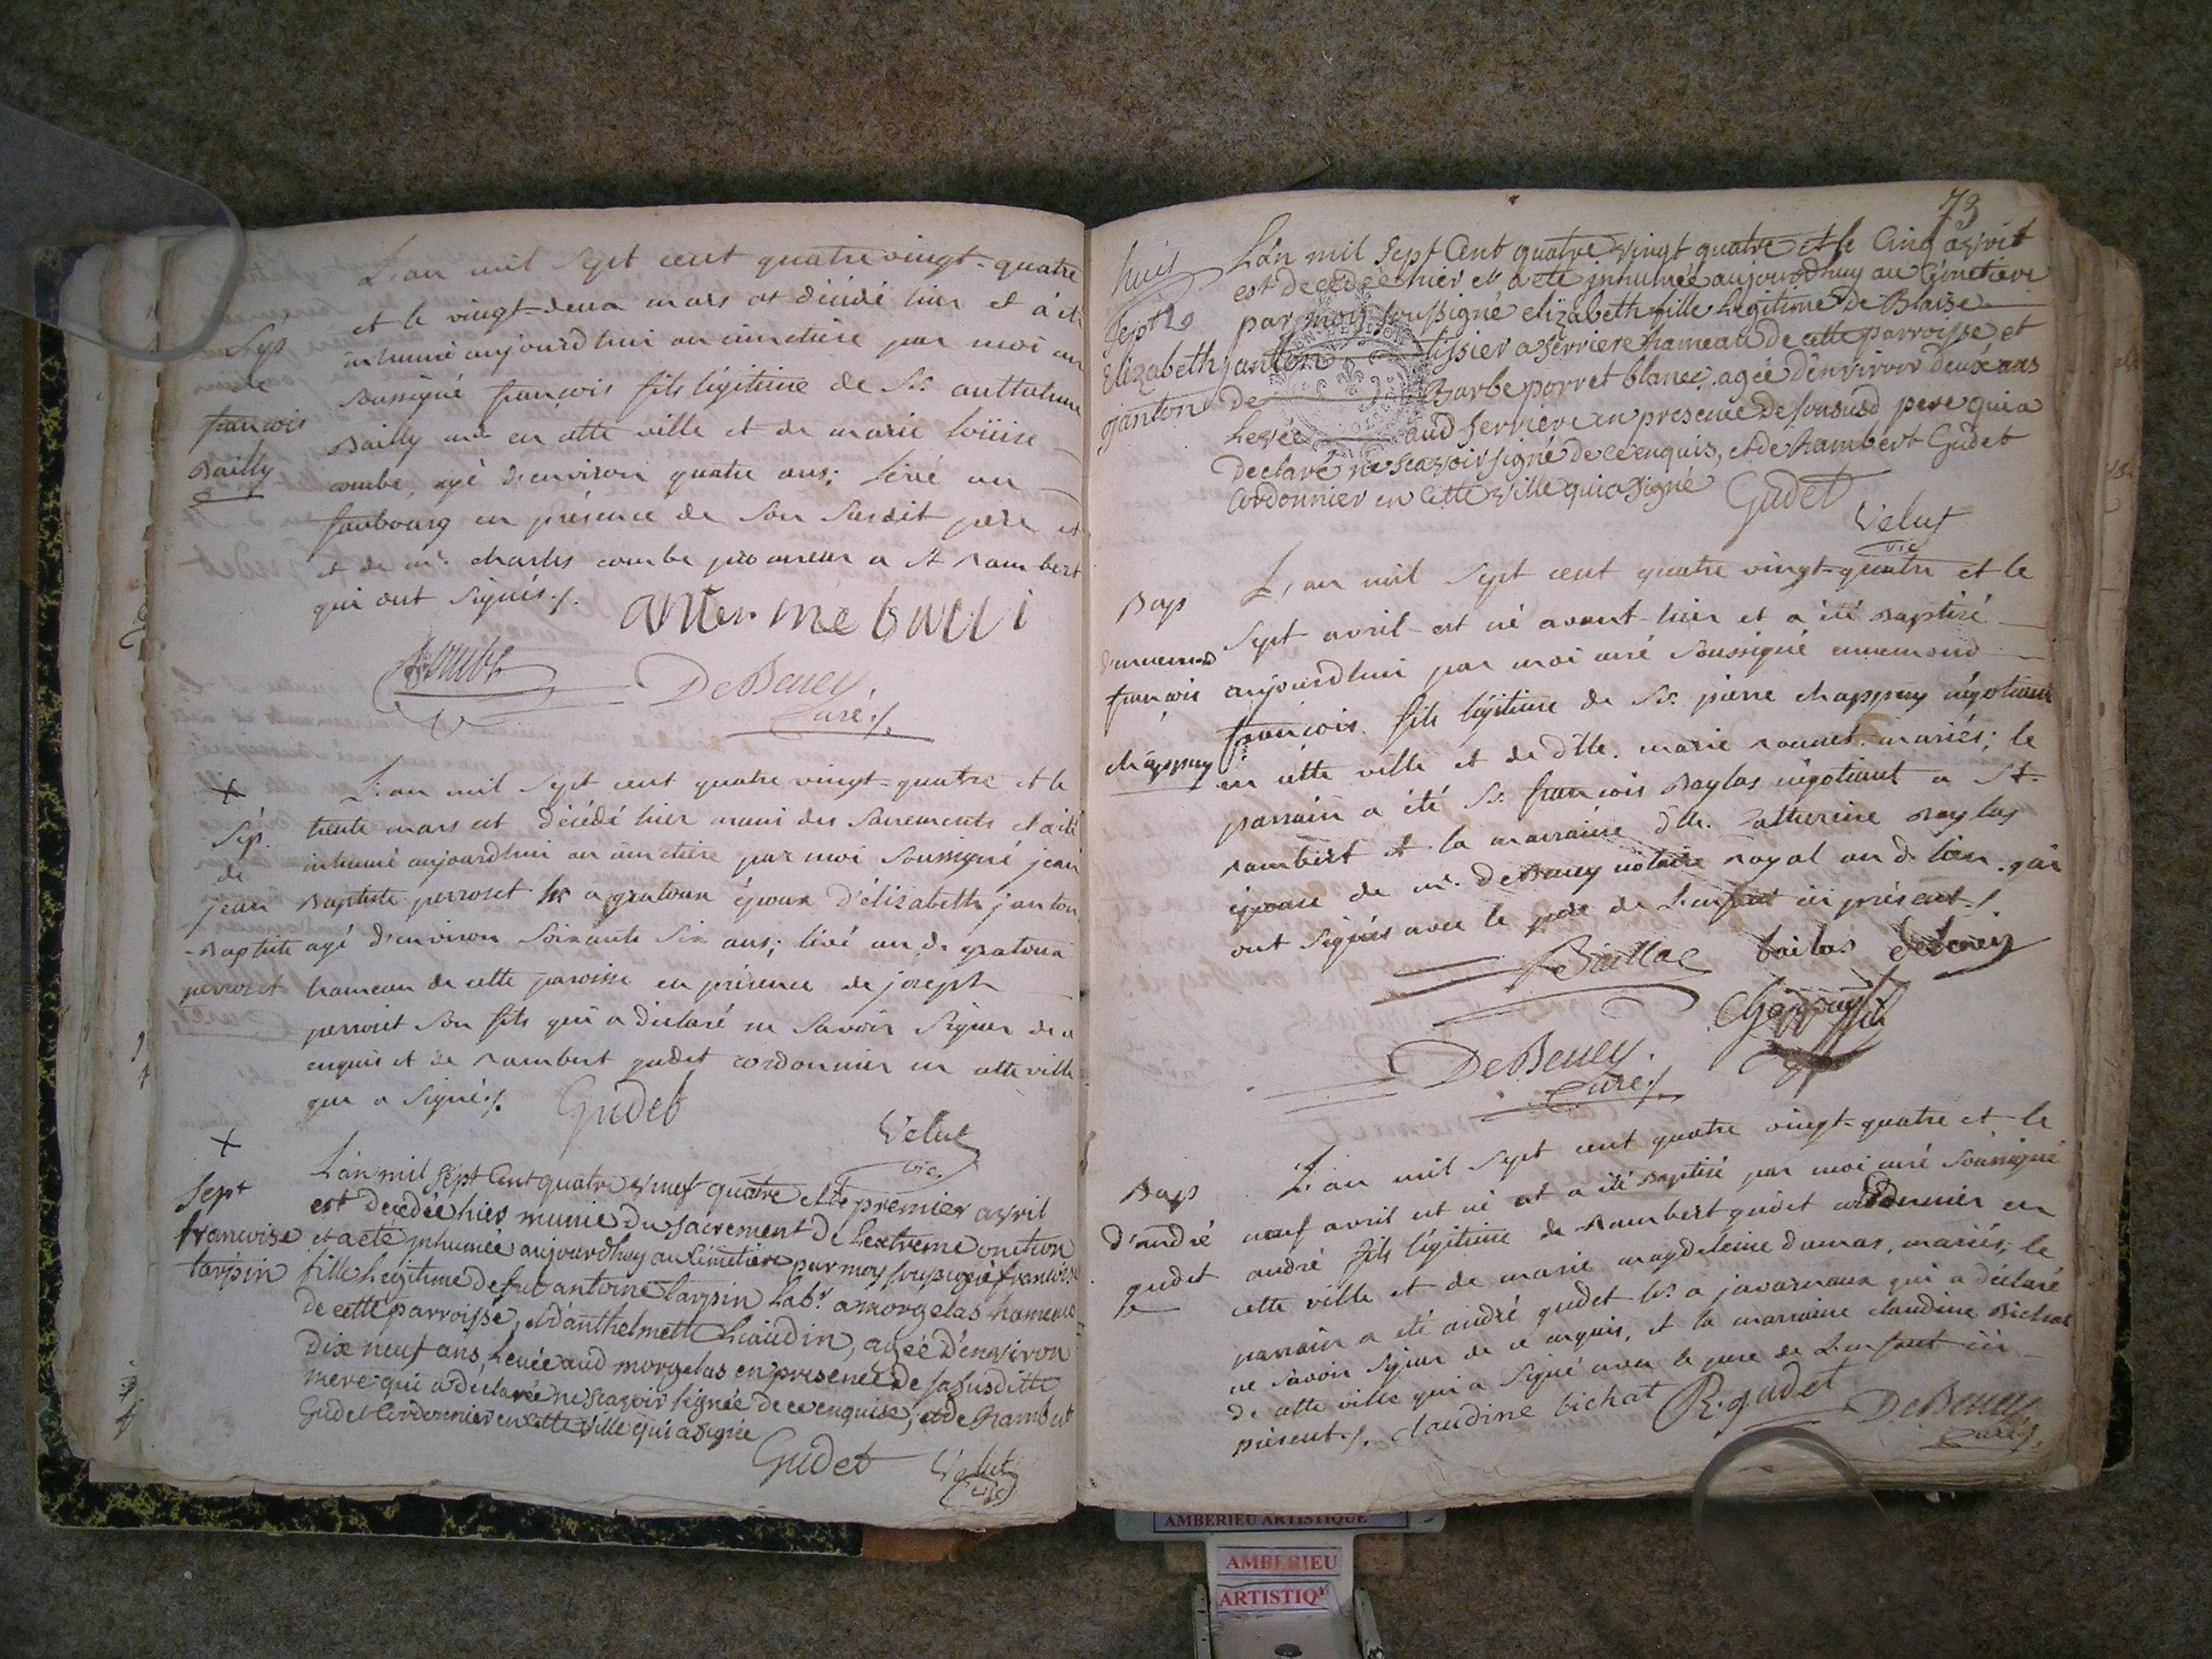 L'an mil sept cent quatre vingt-quatre
et le vingt-deux mars est décédé hier et a été
inhumé aujourd'hui au cimetière par moi curé
soussigné françois fils légitime de Sr. anthelme
Bailly md. en cette ville et de marie loüise
combe, agé d'environ quatre ans; levé au
faubourg en présence de son susdit père et
et de mr. charles combe procureur a st rambert
qui ont signés ./.
Sép
de
françois
Bailly
Combe
DeBeney
Curé ./.
+
L'an mil sept cent quatre vingt-quatre et le
trente mars est décédé hier muni des sacrements et a été
inhumé aujourdhui au cimetière par moi soussigné jean
Baptiste perroset a gratoux époux d'élizabeth janton
agé d'environ soixante six ans; levé au d. gratoux
hameau de cette paroisse en présence de joseph
perroset son fils qui a déclaré ne savoir signer de ce
enquis et de rambert gudet cordonnier en cette ville
qui a signé ./. Gudet
Velut
vic.
Sép.
de
jean
-Baptiste
perroset
+
L'an mil sept Cent quatre vingt quatre et le premier avril
est decedée hier munie du sacrement de L'extreme onction
et a eté inhumée aujourdhuy au Cimetière par moy soussigné francoise
fille legitime de fut antoine tarpin Labr. a morgelas hameau
de cette parroisse, et d'anthelmette Liaudin, agée d'environ
dix neuf ans, Levée aud morgelas en presence de sa susditte
mere qui a déclarée ne scavoir signée de ce enquise, et de Rambert
Gudet Cordonnier en cette ville qui a signée
Gudet Velut
vic
Sept
francoise
tarpin
73
L'an mil sept Cent quatre vingt quatre et le Cinq avril
est decedée hier et a eté inhumée aujourdhuy au Cimetiere
par moy soussigné elizabeth fille Legitime de Blaise
janton tissier a serriere hameau de cette parroisse, et
de Barbe porret blanc, agée d'environ deux ans
Levée aud serriere en presence de son susd pere qui a
declaré ne scavoir signé de ce enquis, et de Rambert Gudet
Cordonnier en cette ville qui a signé Gudet
Velut
vic
huit
Sept
Elizabeth
janton
L'an mil sept cent quatre vingt-quatre et le
sept avril est né avant-hier et a été Baptisé
aujourdhui par moi curé soussigné ennemond
françois fils légitime de Sr. pierre chappuy négotiant
en cette ville et de dlle. marie mariés; le
parrain a été Sr. françois Baylas négotiant a St-
rambert et la marraine dlle. Catherine Baylas
épouse de mr. DeBeney notaire royal au d. lieu. qui
ont signés avec le père de l'enfant ici présent ./.
bailas deBeney
Chappuy
DeBeney.
Curé ./.
Bap
d'ennemond
françois
chappuy
L'an mil sept cent quatre vingt-quatre et le
neuf avril est né et a été Baptisé par moi curé soussigné
andré fils légitime de Rambert gudet cordonnier en
cette ville et de marie magdeleine dumas, mariés; le
parrain a été andré gudet a javarnaux qui a déclaré
ne savoir signer de ce enquis, et la marraine claudine Bichat
de cette ville qui a signé avec le père de l'enfant ici
présent ./. claudine bichat R. gudet DeBeney
Curé ./.
Bap
d'andré
gudet
AMBERIEU ARTISTIQUE
AMBERIEU
ARTISTIQ